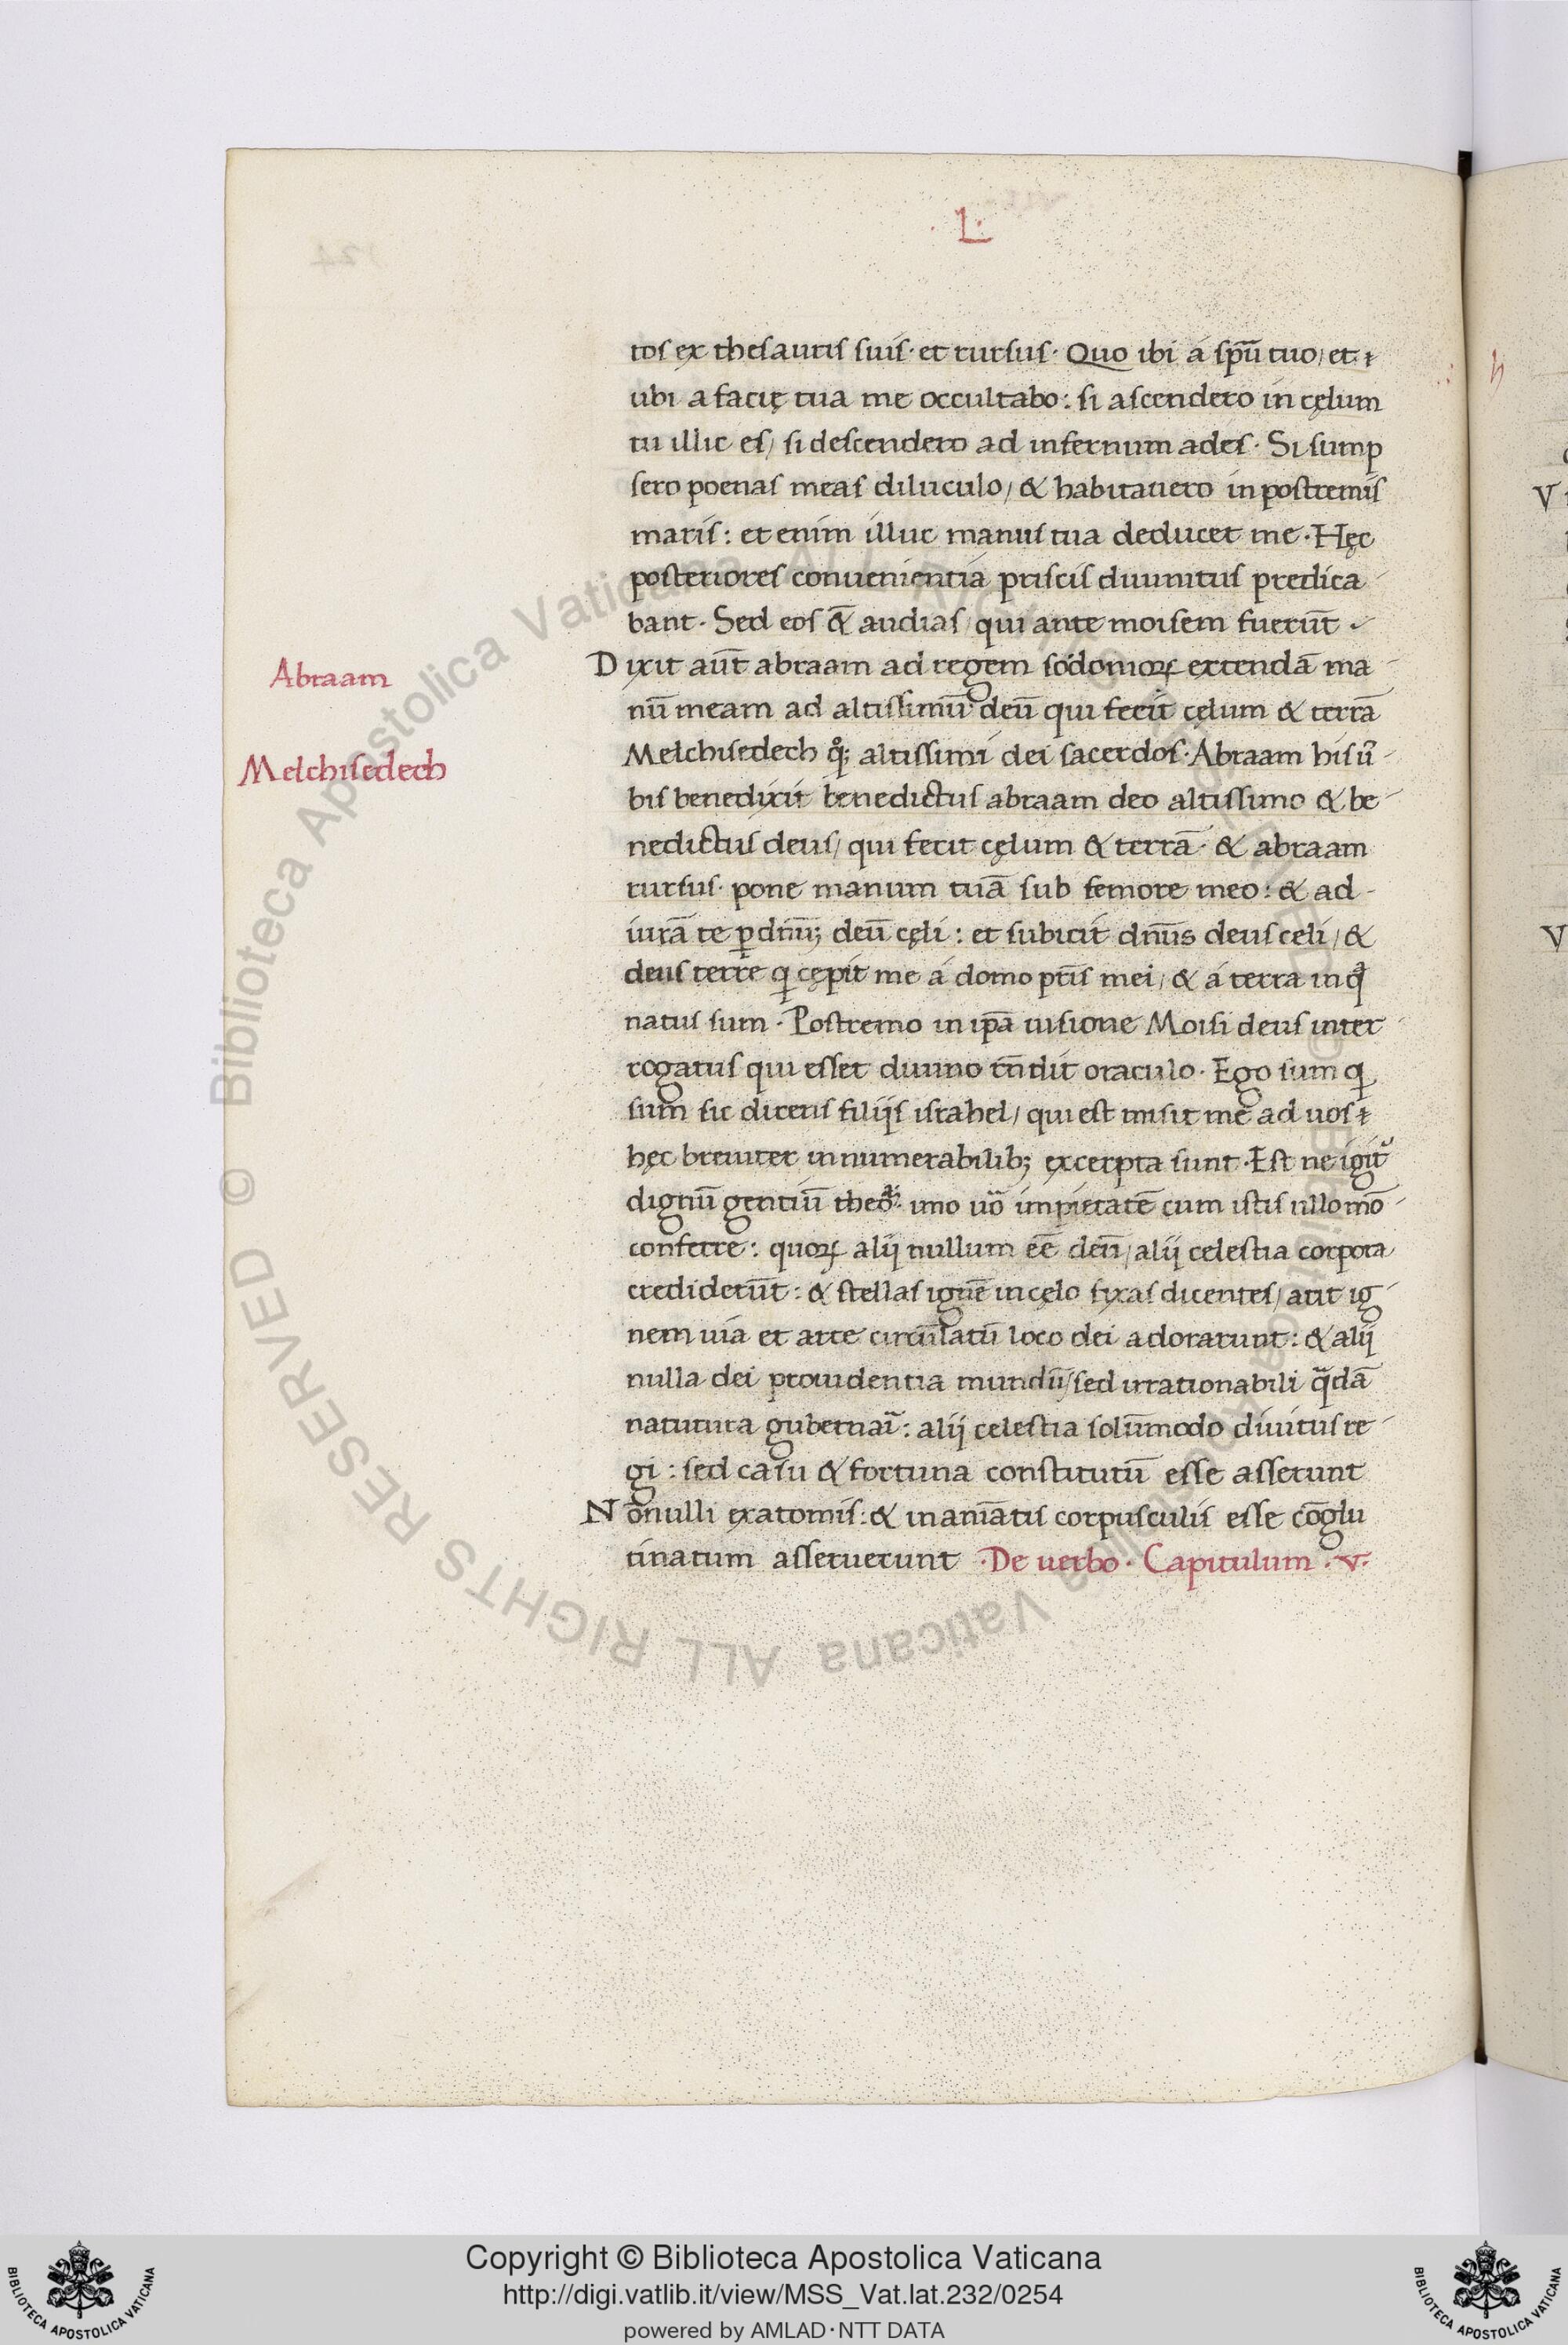 · L ·
tos ex thesauris suis· et rursus· Quo ibi á sp̄u tuo, et
ubi a facię tua me occultabo: si ascendero in cęlum
tu illic es, si descendero ad infernum ades· Si sump
sero poenas meas diluculo, & habitauero in postremis
maris: et enim illuc manus tua deducet me· Hęc
posteriores conuenientia priscis diuinitus predica
bant· Sed eos & audias, qui ante moisem fuerūt
Abraam
Dixit aūt abraam ad regem sodomoꝝ extendā ma
nū meam ad altissimū deū qui fecit cęlum & terrā
Melchisedech
Melchisedech altissimi dei sacerdos· Abraam his
bis benedixit benedictus abraam deo altissimo & be
nedictus deus, qui fecit cęlum & terrā· & abraam
rursus· pone manum tuā sub femore meo: & ad
iurā te ꝑ deū cęli: et subicit dn̄us deus celi, &
deus terre cępit me á domo pr̄is mei, & á terra in
natus sum· Postremo in ip̄a uisione Moisi deus inter
rogatus qui esset diuino oraculo· Ego sum
sum sic dicens filijs israhel, qui est misit me ad uos
hęc breuiter innumerabilibꝫ excerpta sunt· Est ne
dignū gentiū imo impietatē cum istis ullo mō
conferre: quoꝝ alij nullum eē deū, alij celestia corpora
crediderūt: & stellas ignē in cęlo fixas dicentes, ig
nem uia et arte circūlatū loco dei adorarunt: & alij
nulla dei prouidentia mundū, sed irrationabili q̄dā
natutura gubernari: alij celestia solūmodo diuitus re
gi: sed casu & fortuna constitutū esse asserunt
Nōnulli ex atomis: & inanīatis corpusculis esse cōglu
tinatum asseruerunt ·De uerbo· Capitulum ·v·
Copyright © Biblioteca Apostolica Vaticana
http://digi.vatlib.it/view/MSS_Vat.lat.232/0254
powered by AMLAD·NTT DATA
BIBLIOTECA APOSTOLICA VATICANA
BIBLIOTECA APOSTOLICA VATICANA
© Biblioteca Apostolica Vaticana ALL RIGHTS RESERVED
© Biblioteca Apostolica Vaticana ALL RIGHTS RESERVED